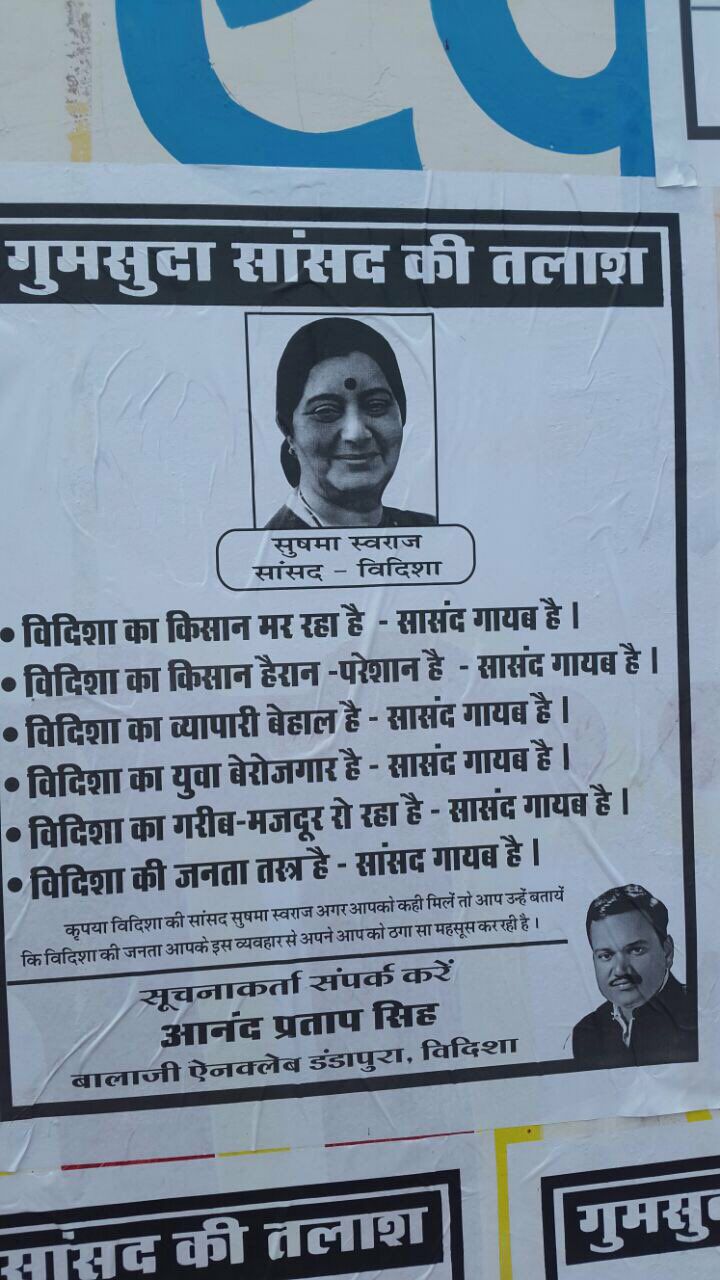 गुमसुदा सांसद की तलाश
सुषमा स्वराज
सांसद - विदिशा
• विदिशा का किसान मर रहा है - सासंद गायब है ।
• विदिशा का किसान हैरान -परेशान है - सासंद गायब है ।
• विदिशा का व्यापारी बेहाल है - सासंद गायब है ।
• विदिशा का युवा बेरोजगार है - सासंद गायब है ।
• विदिशा का गरीब-मजदूर रो रहा है - सासंद गायब है ।
• विदिशा की जनता तस्त्र है - सांसद गायब है ।
कृपया विदिशा की सांसद सुषमा स्वराज अगर आपको कही मिलें तो आप उन्हें बतायें
कि विदिशा की जनता आपके इस व्यवहार से अपने आप को ठगा सा महसूस कर रही है ।
सूचनाकर्ता संपर्क करें
आनंद प्रताप सिंह
बालाजी ऐनक्लेब डंडापुरा, विदिशा
सांसद की तलाश